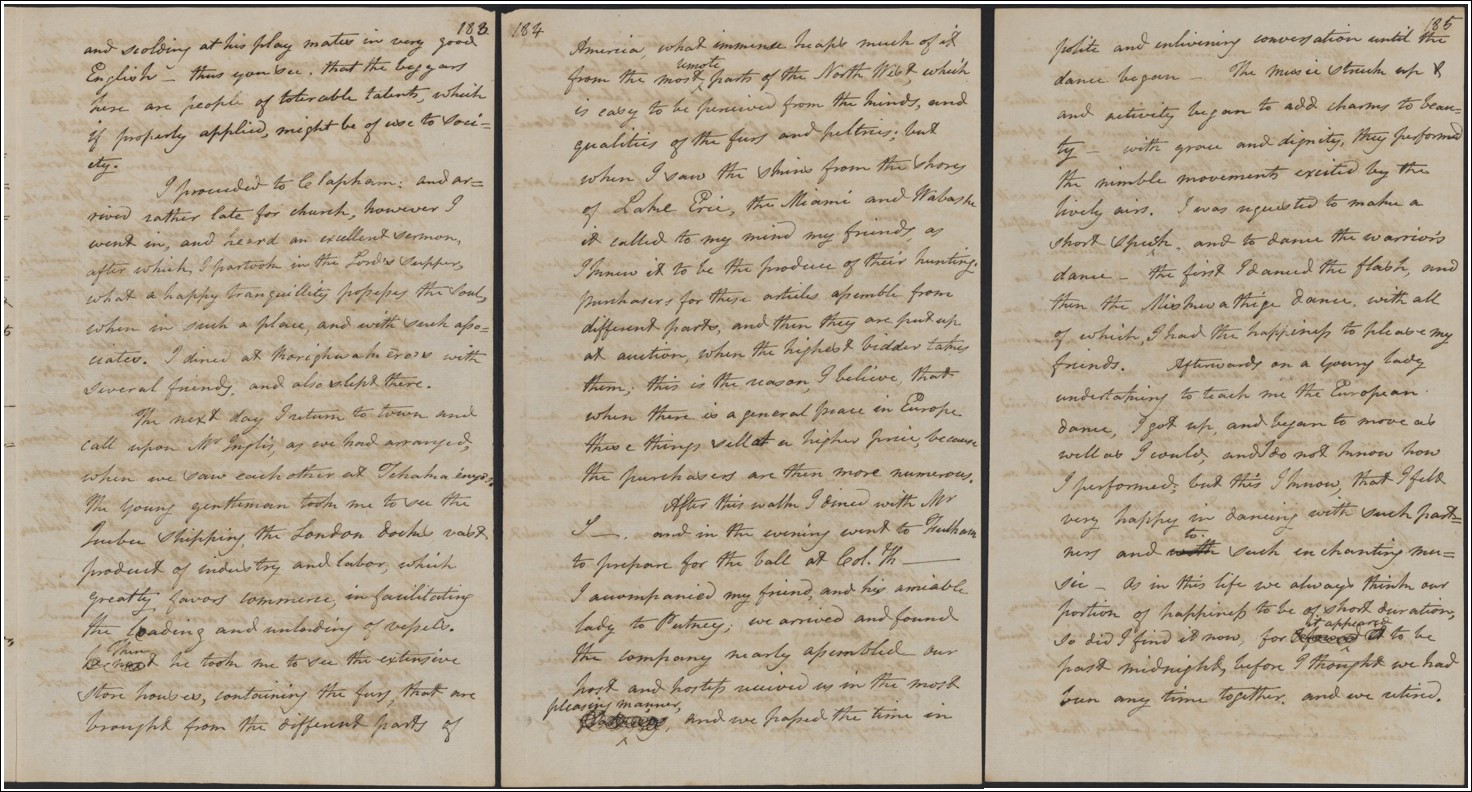 183
and scolding at his play mates in very good
English – thus you see, that the beggars
here are people of tolerable talents, which
if properly applied, might be of use to soci=
ety.
I proceeded to Clapham: and ar=
rived rather late for church, however I
went in, and heard an excellent sermon,
after which, I partook in the Lord's supper,
what a happy tranquillity possesses the soul,
when in such a place, and with such asso=
ciates. I dined at with
several friends, and also slept there.
The next day I return to town and
call upon Mr Inglis, as we had arranged,
when we saw each other at
The young gentleman took me to see the
Quebec shipping, the London docks vast
product of industry and labor, which
greatly favors commerce, in facilitating
the loading and unloading of vessels.
Then
he took me to see the extensive
store houses, containing the furs, that are
brought from the different parts of
184
America, what immense heaps much of it
remote
from the most parts of the North West which
is easy to be perceived from the kinds, and
qualities of the furs and peltries; but
when I saw the skins from the shores
of Lake Erie, the Miami and Wabash
it called to my mind my friends, as
I knew it to be the produce of their hunting.
purchasers for these articles assemble from
different parts, and then they are put up
at auction, when the highest bidder takes
them; this is the reason, I believe, that
when there is a general peace in Europe
these things sell at a higher price, because
the purchasers are then more numerous.
After this walk I dined with Mr
I—. and in the evening went to Fulham
to prepare for the ball at Col. Th——
I accompanied my friend, and his amiable
lady to Putney; we arrived and found
the company nearly assembled our
host and hostess received us in the most
pleasing manner,
, and we passed the time in
185
polite and enlivening conversation until the
dance began – The music struck up &
and activity began to add charms to beau=
ty – with grace and dignity, they performed
the nimble movements excited by the
lively airs. I was requested to make a
short speech, and to dance the warrior's
dance – the first I danced the flash, and
then the dance, with all
of which, I had the happiness to please my
friends. Afterwards on a young lady
undertaking to teach me the European
dance, I got up, and began to move as
well as I could, and I do not know how
I performed; but this I know, that I felt
very happy in dancing with such part=
to
ners and with such enchanting mu=
sic – As in this life we always think our
portion of happiness to be of short duration,
it appeared
so did I find it now, for to be
past midnight, before I thought we had
been any time together. and we retired.